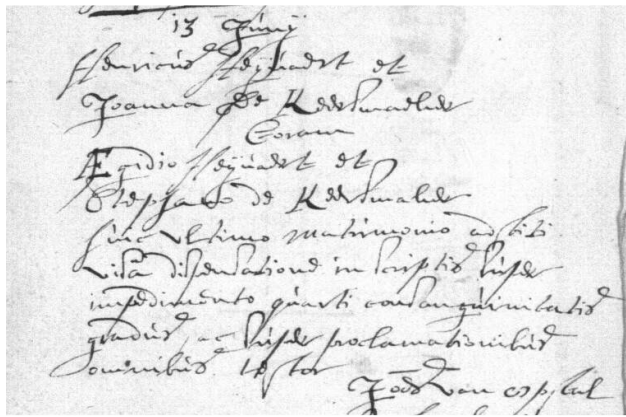 13 Junij
Henricus Heijvaert et
Joanna De Keersmaeker
Coram
Ægidio Heijvaert et
Stephano de Keersmaker
huic ultimo matrimonio astiti
visa dispensatione in scriptis super
impedimento quarti consanguinitatis
gradus, ac super proclamationibus
omnibus testor
Joês van ospital